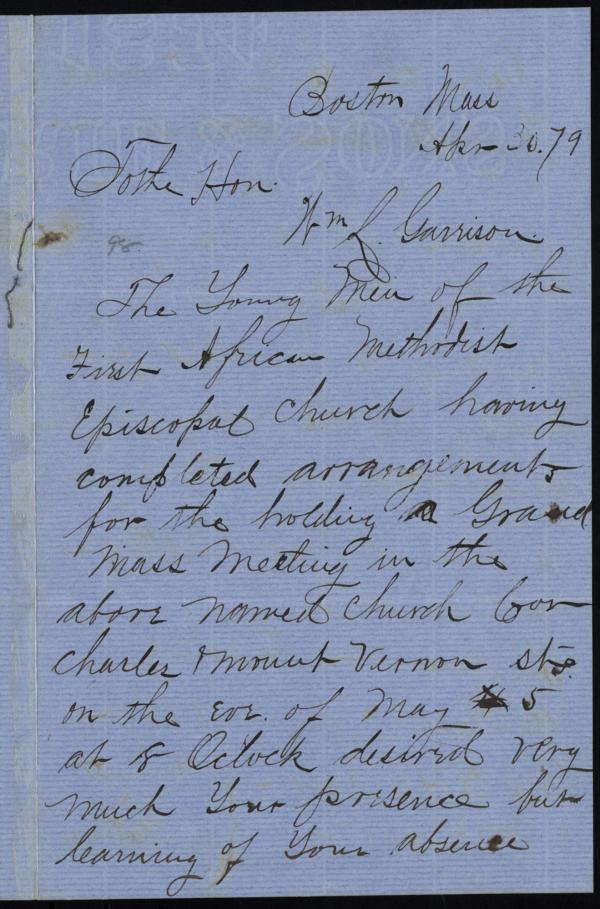 Boston Mass
Apr 30. 79
To the Hon.
Wm L. Garrison.
98.
The Young Men of the
First African Methodist
Episcopal Church having
completed arrangements
for the holding a Grand
Mass Meeting in the
above named Church Cor
Charles & Mount Vernon sts.
on the eve. of May 5
at 8 Oclock desired very
much Your presence but
learning of Your absence